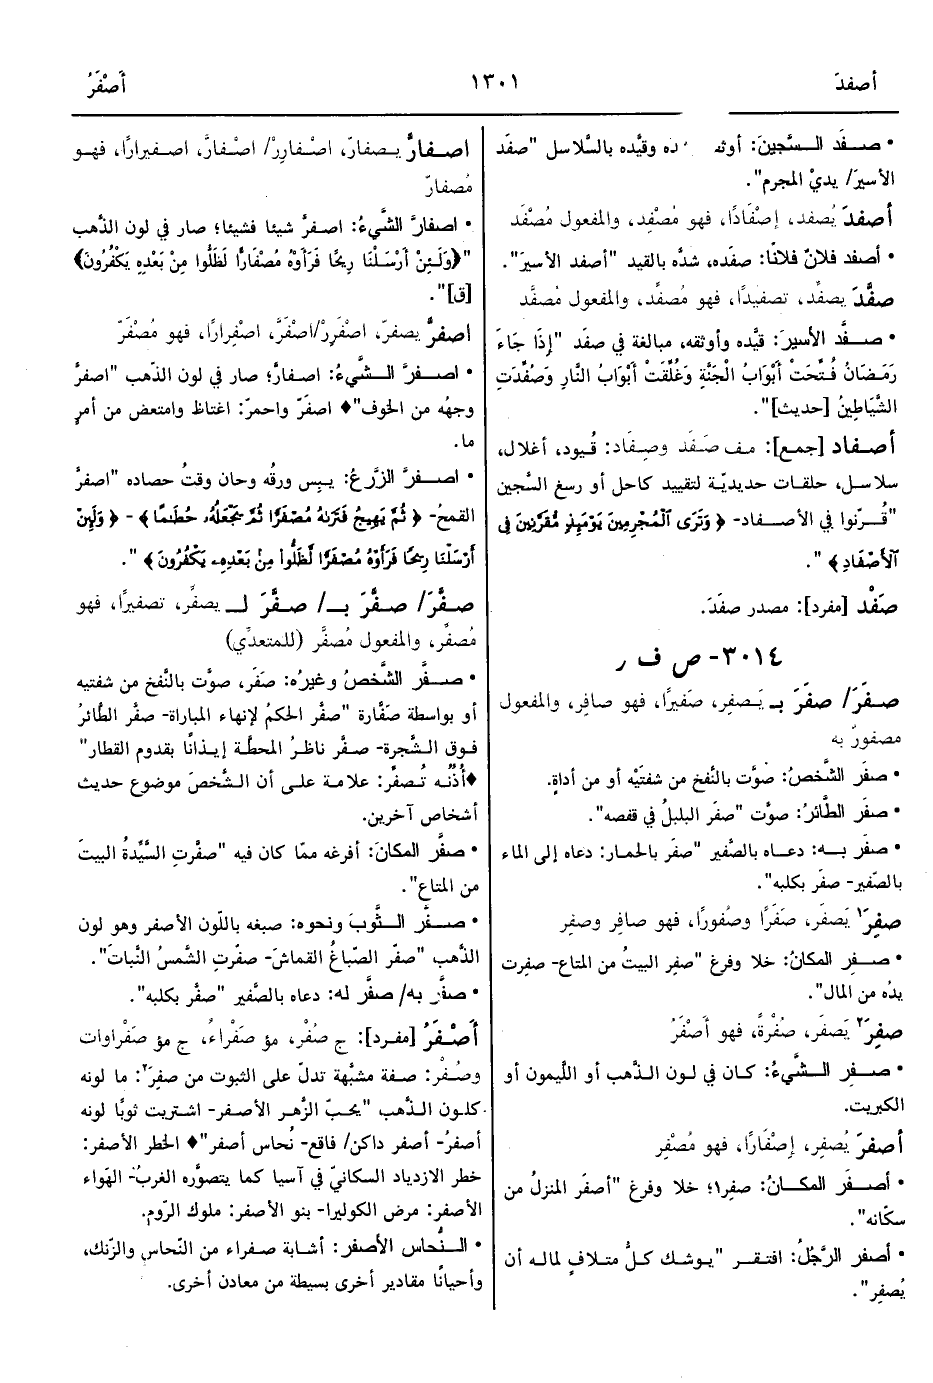 أصفدَ
١٣٠١
أَصْفَرُ
• صفَد السِّجينَ: أوثـ ـده وقيَّده بالسَّلاسل "صفَد
الأسيرَ/ يديْ المجرم".
أصفدَ يُصفد، إصْفادًا، فهو مُصْفِد، والمفعول مُصْفَد
• أصفد فلانٌ فلانًا: صفَده، شدَّه بالقيد "أصفد الأسيرَ".
صفَّدَ يصفِّد، تصفيدًا، فهو مُصفِّد، والمفعول مُصفَّد
• صفَّد الأسيرَ: قيَّده وأوثقه، مبالغة في صفَد "إذَا جَاءَ
رَمَضَانُ فُتِّحَتْ أَبْوَابُ الْجَنَّةِ وَغُلِّقَتْ أَبْوَابُ النَّارِ وَصُفِّدَتِ
الشَّيَاطِينُ [حديث]".
أصفاد [جمع]: مف صَفَد وصِفَاد: قُيود، أغلال،
سلاسل، حلقات حديديّة لتقييد كاحل أو رسغ السِّجين
"قُرِّنوا في الأصفاد- ﴿ وَتَرَى الْمُجْرِمِينَ يَوْمَئِذٍ مُقَرَّنِينَ فِي
الأَصْفَادِ﴾ ".
صَفْد [مفرد]: مصدر صفَدَ.
٣٠١٤- ص ف ر
صفَرَ/ صفَرَ بـ يَصفِر، صَفيرًا، فهو صافِر، والمفعول
مصفورٌ به
• صفَر الشَّخصُ: صوَّت بالنَّفخ من شفتيْه أو من أداةٍ.
• صفَر الطَّائرُ: صوَّت "صفَر البلبلُ في قفصه".
• صفَر به: دعاه بالصَّفير "صفَر بالحمار: دعاه إلى الماء
بالصَّفير- صفَر بكلبه".
صفِرَ١ يَصفَر، صَفَرًا وصُفورًا، فهو صافِر وصفِر
• صفِر المكانُ: خلا وفرغ "صفِر البيتُ من المتاع- صفِرت
يدُه من المال".
صفِرَ٢ يَصفَر، صُفْرةً، فهو أَصْفَرُ
• صفِر الشَّيءُ: كان في لون الذهب أو اللَّيمون أو
الكبريت.
أصفرَ يُصفِر، إصْفارًا، فهو مُصْفِر
• أصفَر المكانُ: صفِر١؛ خلا وفرغ "أصفر المنزلُ من
سكّانه".
• أصفر الرَّجُلُ: افتقر "يوشك كلُّ متلافٍ لماله أن
يُصفِر".
اصفارَّ يصفارّ، اصْفارِرْ/ اصْفارَّ، اصفيرارًا، فهو
مُصفارّ
• اصفارَّ الشَّيءُ: اصفرَّ شيئا فشيئا؛ صار في لون الذَّهب
"﴿وَلَئِنْ أَرْسَلْنَا رِيحًا فَرَأَوْهُ مُصْفَارًّا لَظَلُّوا مِنْ بَعْدِهِ يَكْفُرُونَ﴾
[ق]".
اصفرَّ يصفرّ، اصْفَرِرْ/اصْفَرَّ، اصْفِرارًا، فهو مُصْفَرّ
• اصفرَّ الشَّيءُ: اصفارَّ؛ صار في لون الذّهب "اصفرَّ
وجهُه من الخوف"♦ اصفَرّ واحمرّ: اغتاظ وامتعض من أمرٍ
ما.
• اصفرَّ الزَّرعُ: يبِس ورقُه وحان وقتُ حصاده "اصفرَّ
القمحُ- ﴿ ثُمَّ يَهِيجُ فَتَرَاهُ مُصْفَرًّا ثُمَّ يَجْعَلُهُ حُطَامًا ﴾- ﴿ وَلَئِنْ
أَرْسَلْنَا رِيحًا فَرَأَوْهُ مُصْفَرًّا لَّظَلُّوا مِنْ بَعْدِهِ يَكْفُرُونَ﴾ ".
صفَّرَ/ صفَّرَ بـ/ صفَّرَ لـ يصفِّر، تصفيرًا، فهو
مُصفِّر، والمفعول مُصفَّر (للمتعدِّي)
• صفَّر الشَّخصُ وغيرُه: صفَر، صوَّت بالنَّفخ من شفتيه
أو بواسطة صَفَّارة "صفَّر الحكمُ لإنهاء المباراة- صفَّر الطَّائرُ
فوق الشَّجرة- صفَّر ناظرُ المحطَّة إيذانًا بقدوم القطار"
♦أُذُنُه تُصفِّر: علامة على أن الشَّخصَ موضوع حديث
أشخاص آخرين.
• صفَّر المكانَ: أفرغه ممّا كان فيه "صفَّرتِ السَّيِّدةُ البيتَ
من المتاع".
• صفَّر الثَّوبَ ونحوه: صبغه باللّون الأصفر وهو لون
الذَّهب "صفّر الصّبّاغُ القماشَ- صفّرتِ الشَّمسُ النَّبات".
• صفَّر به/ صفَّر له: دعاه بالصَّفير "صفَّر بكلبه".
أَصْفَرُ [مفرد]: ج صُفْر، مؤ صَفْراءُ، ج مؤ صَفْراوات
وصُفْر: صفة مشبَّهة تدلّ على الثبوت من صفِرَ٢: ما لونه
كلون الذَّهب "يحَبّ الزَّهر الأصفر- اشتريت ثوبًا لونه
أصفرُ- أصفر داكن/ فاقع- نُحاس أصفر"♦ الخطر الأصفر:
خطر الازدياد السكانيّ في آسيا كما يتصوَّره الغربُ- الهَواء
الأصفر: مرض الكوليرا- بنو الأصفر: ملوك الرّوم.
• النُّحاس الأصفر: أشابة صفراء من النّحاس والزّنك،
وأحيانًا مقادير أخرى بسيطة من معادن أخرى.